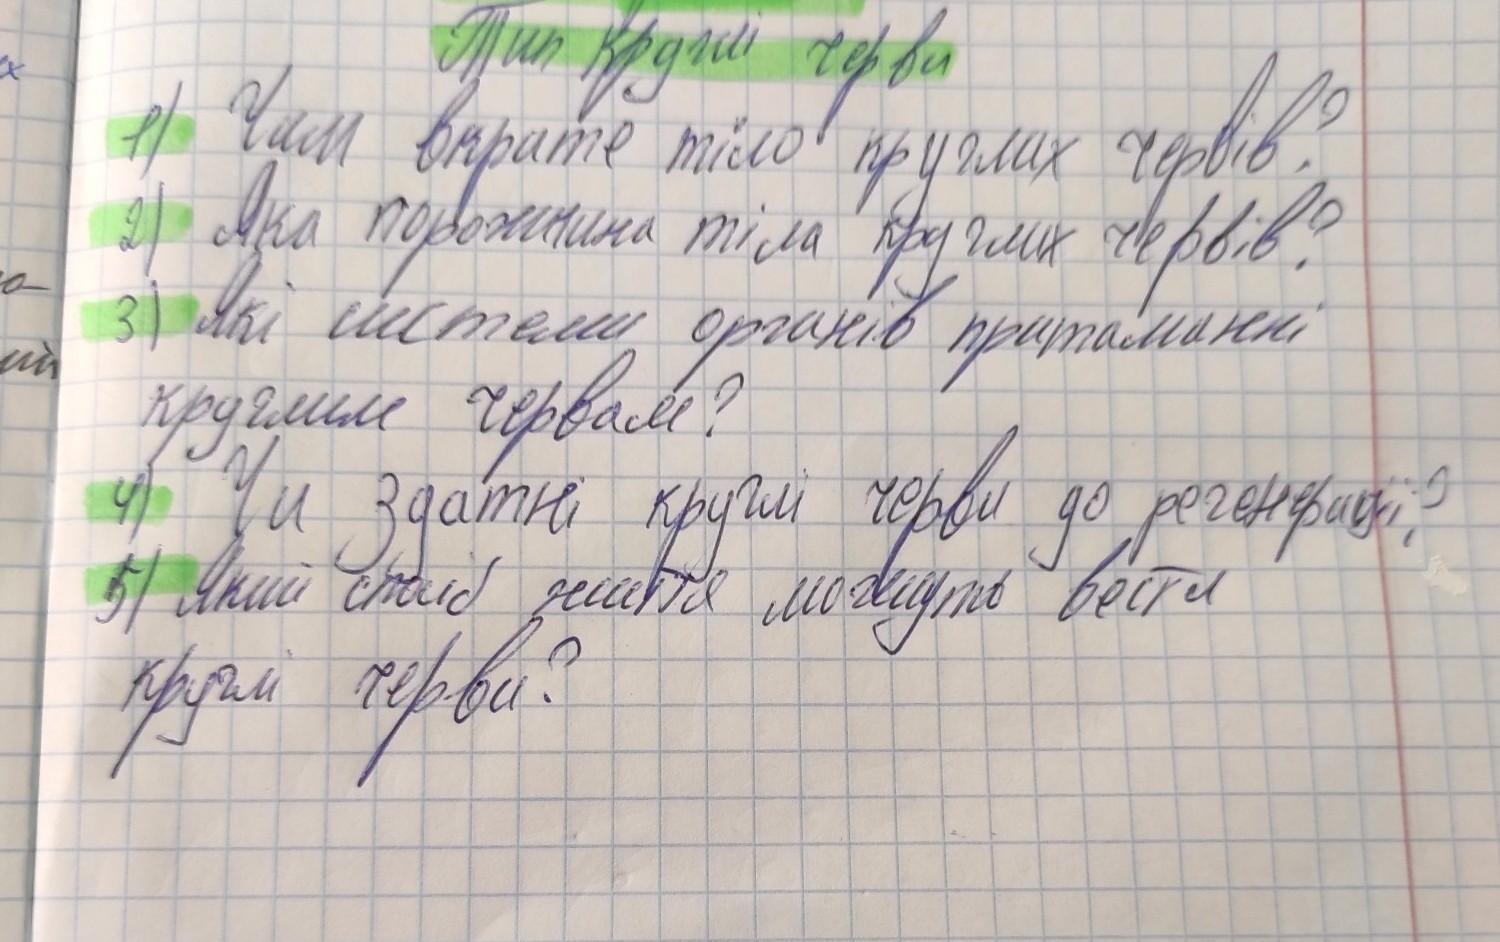 Тип Круглі черви
1) Чим вкрите тіло круглих червів?
2) Яка порожнина тіла круглих червів?
3) Які системи органів притаманні
круглим червам?
4) Чи здатні круглі черви до регенерації?
5) Який спосіб життя можуть вести
круглі черви?